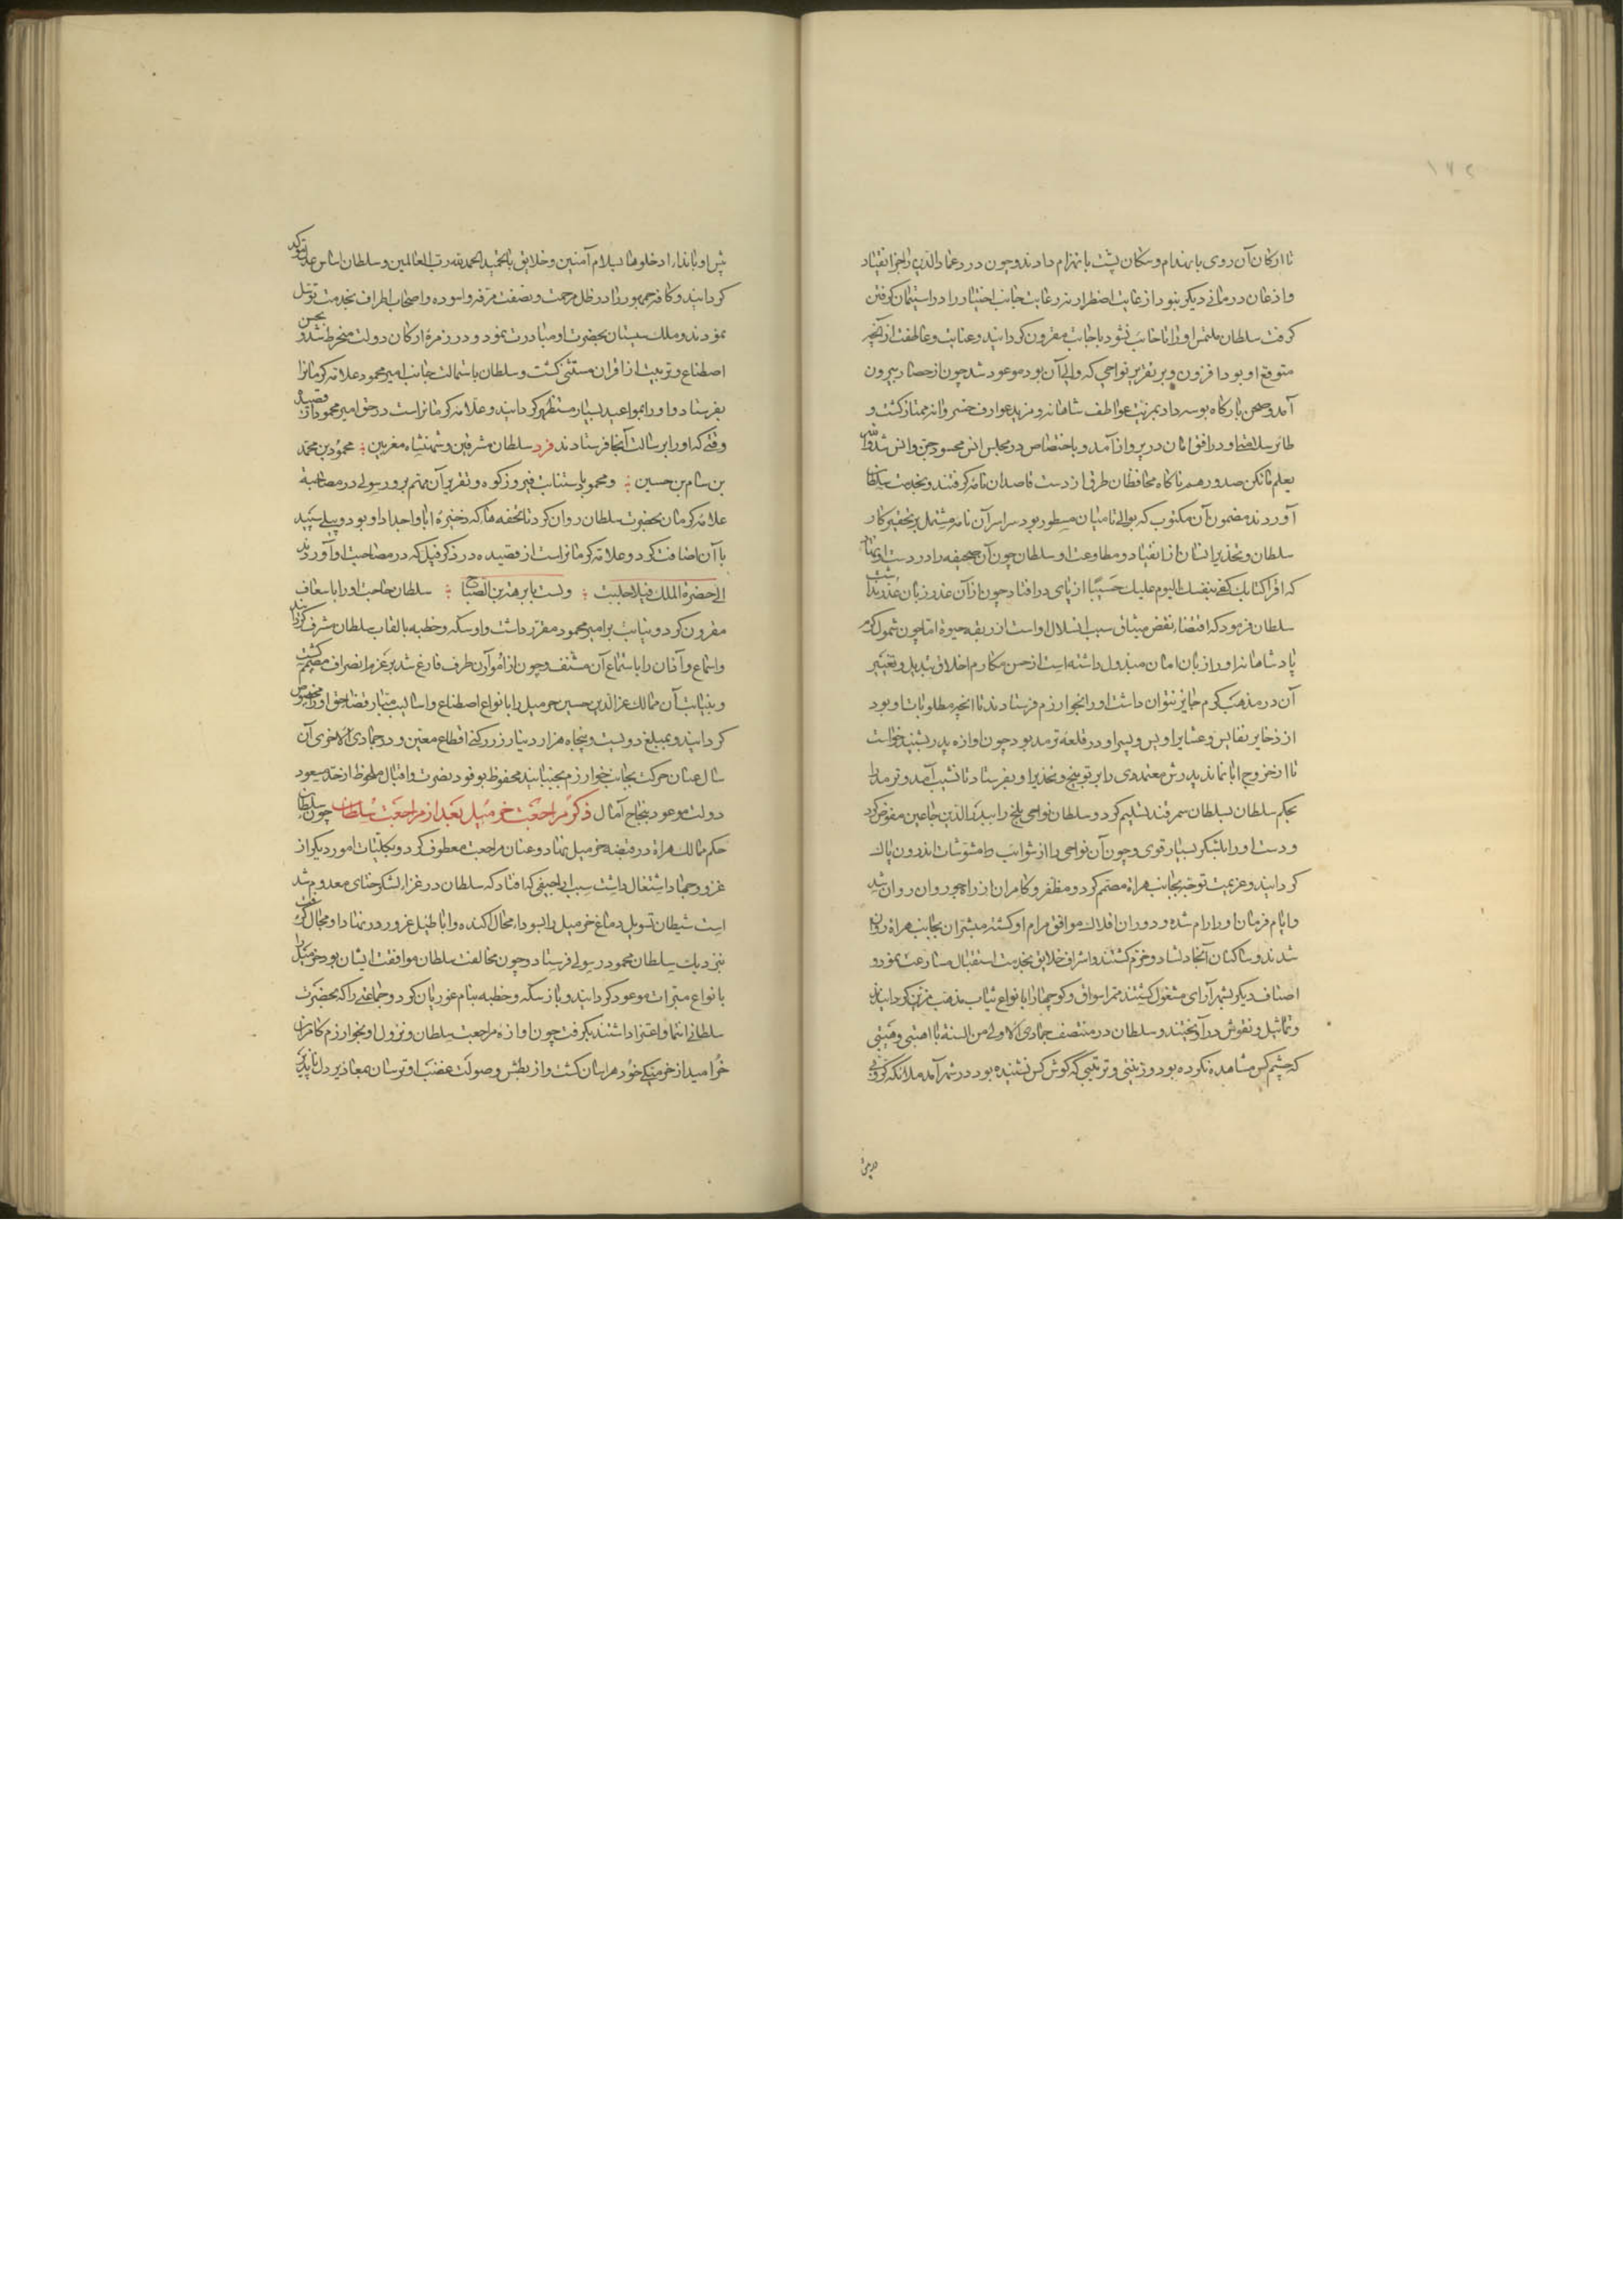 تا ارکان آن روی بانهدام و سکان پشت بانهزام دادند و چون درد عماد الدین را جز انقیاد
و اذعان درمانی دیگر نبود از غایت اضطرار نه رعایت جانب اختیار را در استیمان کوفتن
گرفت سلطان ملتمس او را باجابت مقرون گردانید و عنایت و عاطفت از آنچه
متوقع او بود افزون و بر تقریر نواحی که والی آن بود موعود شد چون از حصار بیرون
آمد و صحن بارگاه بوسه داد بمزیت عواطف شاهانه و مزید عوارف خسروانه ممتاز گشت و
طائر سلامت او در افق امان در پرواز آمد و باختصاص در مجلس انس محسود جن و انس شد والله
یعلم ما تکن صدورهم ناگاه محافظان طرق از دست قاصدان نامه گرفتند و بخدمت سلطان
آوردند مضمون آن مکتوب که بوالی بامیان مسطور بود سراسر آن نامه مشتمل بر تحقیر کار
سلطان و تحذیر ایشان از انقیاد و مطاوعت او سلطان چون آن صحیفه را در دست او نهاد
که اقرا کتابک کفی بنفسک الیوم علیک حسیبا از پای درافتاد چون از آن غدر زبان عذر نداشت
سلطان فرمود که اقتضاء نقض میثاق سبب انسلال او است از ربقه حیوة اما چون شمول کرم
پادشاهانه او را زبان امان مبذول داشته است از حسن مکارم اخلاق تبدیل و تغییر
آن در مذهب کرم جایز نتوان داشت او را بخوارزم فرستادند تا آنچه مطلوبات او بود
از ذخایر نفایس و عشایر او پس و پسر او در قلعه ترمد بود چون اوازه پدر بشنید خواست
تا از خروج ابا نماید پدرش معتمدی را بر توبیخ و تحذیر او بفرستاد تا نشیب آمد و ترمد را
بحکم سلطان بسلطان سمرقند تسلیم کرد و سلطان نواحی بلخ را ببدر الدین جاعین مفوض کرد
و دست او را بلشکر بسیار قوی و چون آن نواحی را از شوایب و امشوشات اندرون پاک
گردانید و عزیمت توجه بجانب هراة مصمم کرد و مظفر و کامران از راه جوروان روان شد
و ایام فرمان او را رام شده و دوران افلاک موافق مرام او گشته مبشران بجانب هراة روان
شدند و ساکنان آنجا دلشاد و خرم گشتند و اشراف خلایق بخدمت استقبال مسارعت نمودو
اصناف دیگر بشهرآرای مشغول گشتند ممر اسواق و کوچها را بانواع ثیاب مذهب مزین گردانیدند
و تماثیل و نقوش درآویختند و سلطان در منتصف جمادی الاولی من السنه با اهبتی و هیبتی
که چشم کس مشاهده نکرده بود و زینتی و ترتیبی که گوش کس نشنیده بود در شهر آمد ملائکه کروبی
پس او بانداء ادخلوها بسلام آمنین و خلایق بالحمید الحمد لله رب العالمین و سلطان اساس عدل تموکد
گردانید و کافه جمهور را در ظل مرحمت و نصفت مرفه و اسوده و اصحاب اطراف بخدمت توسل
نمودند و ملک سیستان بحضرت او مبادرت نمود و در زمره ارکان دولت منخرط شد و بحسن
اصطناع و تربیت از اقران مستثنی گشت و سلطان باستمالت جانب امیر محمود علامه کرمانرا
بفرستاد و او را بمواعید بسیار مستظهر گردانید و علامه کرمانراست در حق امیر محمود از قصیده
وقتی که او را برسالت آنجا فرستادند فرد سلطان مشرقین و شهنشاه مغربین محمود بن محمد
بن سام بن حسین و محمود باستنابت فیروزکوه و تقریر آن مهم برو رسولی در مصاحبه
علامه کرمان بحضرت سلطان روان کرد تا تحفه ها که ذخیره ابا و اجداد او بود و پیلی سپید
با آن اضافت کرد و علامه کرمانراست از قصیده در ذکر فیل که در مصاحبت او آوردند
الی حضرة الملک فیلا جلبت ولست بابرهة بن الصباح سلطان حاجت او را باسعاف
مقرون کرد و نیابت بر امیر محمود مقرر داشت و او سکه و خطبه بالقاب سلطان مشرف گردانید
و اسماع و آذان را باستماع آن مشنف و چون از امور آن طرف فارغ شد بر عزم انصراف مصمم گشت
و بنیابت آن ممالک عز الدین حسین حرمیل را بانواع اصطناع و اسالیب مبار قضاء حق او را مخصوص
گردانید و بمبلغ دویست و پنجاه هزار دینار زر رکنی اقطاع معین و در جمادی الاخری آن
سال عنان حرکت بجانب خوارزم بجنبانید محفوظ بوفود نصرت و اقبال ملحوظ از حد مسعود
دولت موعود بنجاح آمال ذکر مراجعت خرمیل بعد از مراجعت سلطان چون سلطان
حکم ممالک هراة در قبضه خرمیل نهاد و عنان مراجعت معطوف کرد و بکلیات امور دیگر از
غزو و جهاد اشتغال داشت سبب اراجیفی که افتاد که سلطان در غزاء لشکر ختای معدوم شد
است شیطان تسویل دماغ خرمیل را بسوداء محال آکنده و اباطیل غرور در نهاد او مجال گرفت
بنزدیک سلطان محمود رسولی فرستاد و چون مخالفت سلطان موافقت ایشان بود خرمیل را
بانواع مبرات موعود گردانید و باز سکه و خطبه بنام غوریان کرد و جماعتی را که بحضرت
سلطانی انتما و اعتزا داشتند بگرفت چون اوازه مراجعت سلطان و نزول او بخوارزم کامران
خرامید از خرمنکی خود هراسان گشت و از بطش و صولت غضب او ترسان بمعاذیر دل ناپذیر